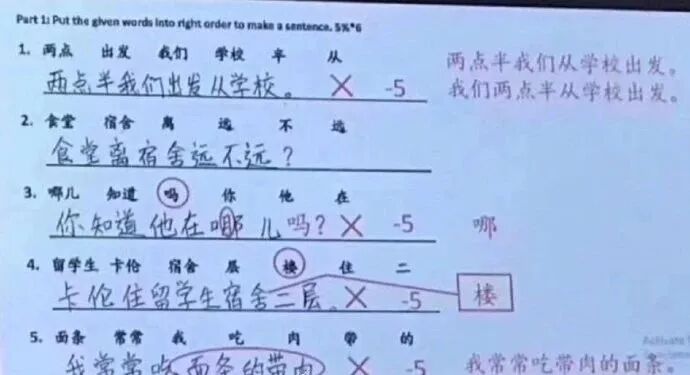 Part 1: Put the given words into right order to make a sentence. 5%*6
1. 两点 出发 我们 学校 半 从
两点半我们出发从学校。 × -5
两点半我们从学校出发。
我们两点半从学校出发。
2. 食堂 宿舍 离 远 不 远
食堂离宿舍远不远？
3. 哪儿 知道 吗 你 他 在
你知道他在哪儿吗？ × -5 哪
4. 留学生 卡伦 宿舍 层 楼 住 二
卡伦住留学生宿舍二层。 × -5 楼
5. 面条 常常 我 吃 肉 带 的
我常常吃面条的带肉 × -5 我常常吃带肉的面条。